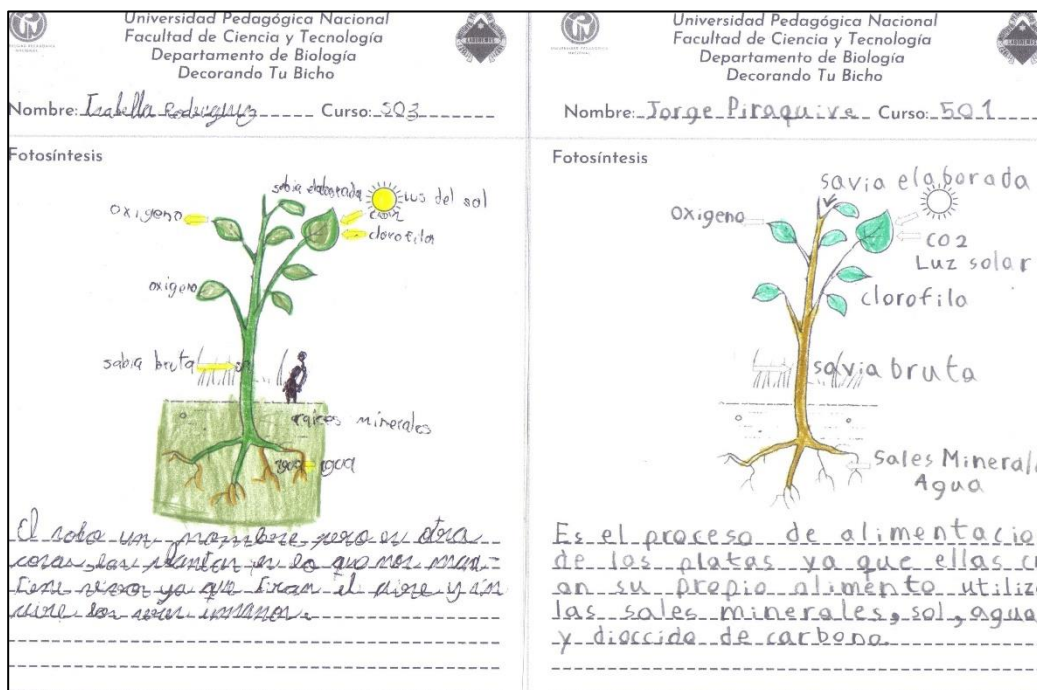 Universidad Pedagógica Nacional
Facultad de Ciencia y Tecnología
Departamento de Biología
Decorando Tu Bicho
Nombre: Isabella Rodriguez Curso: 503
Fotosíntesis
sabia elaborada
lus del sol
oxigeno
clorofila
oxigeno
sabia bruta
raices minerales
agua agua
El solo un nombre pero es otra
cosas las plantas es lo que nos man-
tiene vivos ya que tiran el aire y sin
aire los seres umanos.
Universidad Pedagógica Nacional
Facultad de Ciencia y Tecnología
Departamento de Biología
Decorando Tu Bicho
Nombre: Jorge Piraquive Curso: 501
Fotosíntesis
savia elaborada
oxigeno
CO2
Luz solar
clorofila
savia bruta
Sales Mineral
Agua
Es el proceso de alimentacio
de las platas ya que ellas c
an su propio alimento utiliz
las sales minerales, sol, agua
y dioccido de carbono.